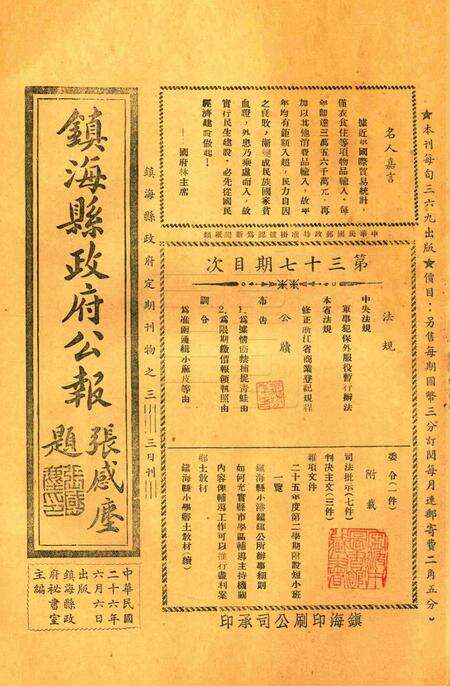 ★本刊每旬三六九出版★價目：另售每期國幣三分訂閱每月連郵寄費二角五分
名人嘉言
據近年國際貿易統計
僅衣食住等項物品輸入，每
年卽達三萬五六千萬元，再
加以其他消費品輸入，故平
年均有鉅額入超，民力自因
之衰敗，漸變成民族國家貧
血證，外患乃乘虛而入，故
實行民生建設，必先從國民
經濟建設做起！
——國府林主席
中華民國郵政特准掛號認爲新聞紙類
第三十七期目次
法規
中央法規
軍事犯保外服役暫行辦法
本省法規
修正浙江省商業登記規程
公牘
布告
1.爲據情布禁捕捉靑蛙由
2.爲限期繳價報領執照由
訓令
爲准函通緝小麻皮等由
委令（一件）
附載
司法批示（七件）
判決主文（三件）
雜項文件
二十五年度第二學期附設短小班
一覽
鎭海縣小港鎭鎭公所辦事細則
如何充實縣市學區輔導主持機關
內容俾輔導工作可以推行盡利案
鄕土敎材
鎭海縣小學鄕土敎材（續）
鎭海印刷公司承印
鎭海縣政府定期刊物之三——三日刊
鎭海縣政府公報
張感塵題
中華民國
二十六年
六月六日
出版
鎭海縣政
府祕書室
主編